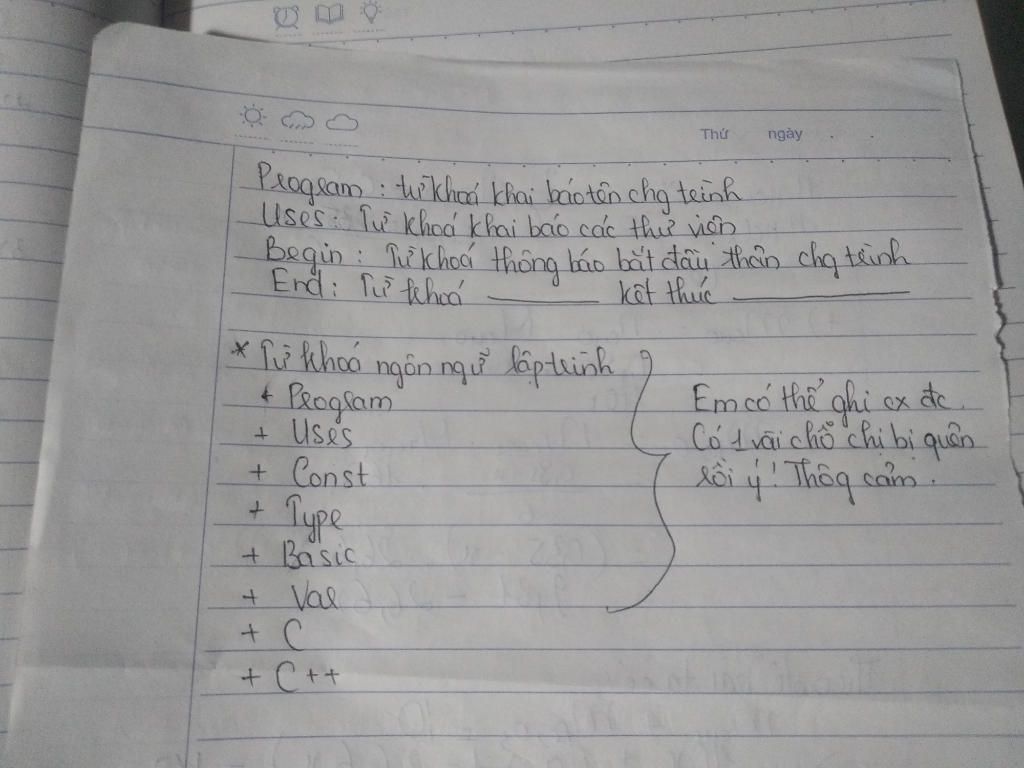 Thứ ngày . .
Program : từ khoá khai báo tên chg trình
Uses : Từ khoá khai báo các thư viện
Begin : Từ khoá thông báo bắt đầu thân chg trình
End : Từ khoá ______ kết thúc ______
* Từ khoá ngôn ngữ lập trình
+ Program
+ Uses
+ Const
+ Type
+ Basic
+ Var
+ C
+ C++
Em có thể ghi cx đc.
Có 1 vài chỗ chị bị quên
rồi ý! Thôg cảm.